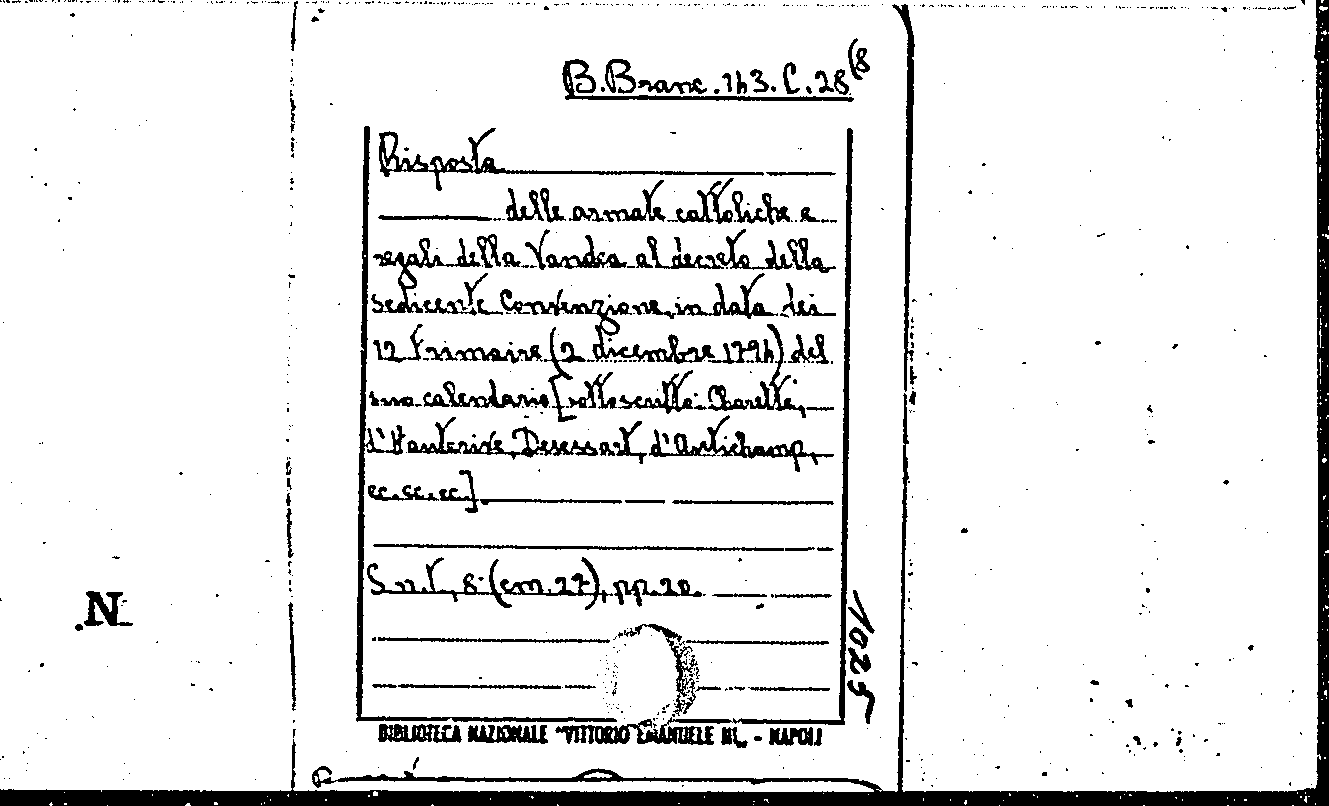 B. Branc. 143. C. 28 (8
Risposta
delle armate cattoliche e
regali della Vandea al decreto della
sedicente Convenzione, in data dei
12 Frimaire (2 dicembre 1794) del
suo calendario [sottoscritta: Charette,
d'Hauterive, Desessart, d'Autichamp,
ec. ec. ec.].
S. n. t., 8° (cm. 27), pp. 20.
1025
N.
BIBLIOTECA NAZIONALE "VITTORIO EMANUELE III„ - NAPOLI